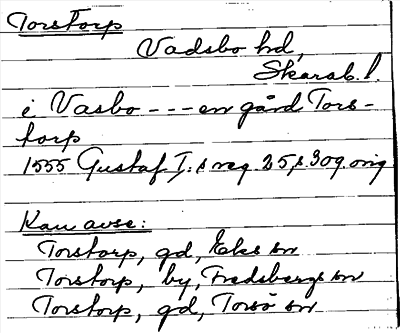 Torstorp
Vadsbo hd,
Skarab. l.
i Vasbo --- en gård Tors-
torp
1555 Gustaf I:s reg. 25, s. 309. orig
Kan avse:
Torstorp, gd, Eks sn
Torstorp, by, Fredsbergs sn
Torstorp, gd, Torsö sn